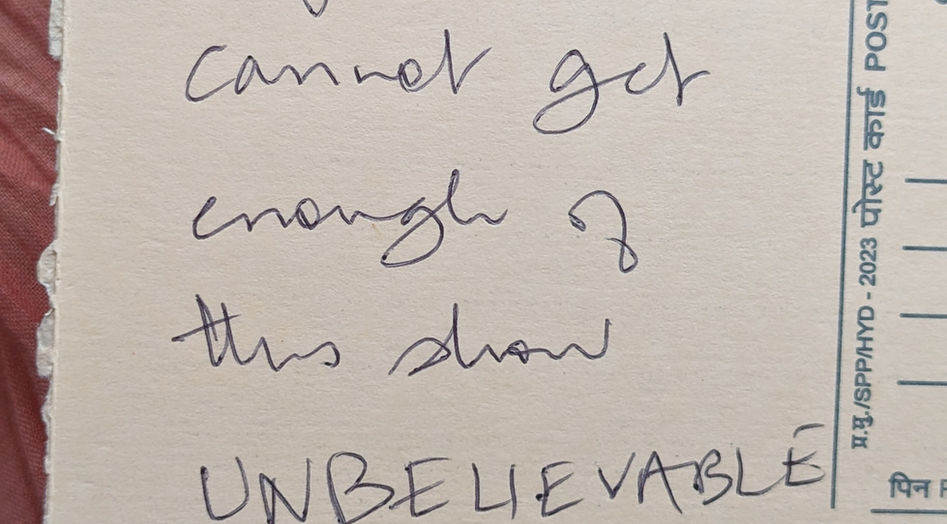 cannot get
enough of
this show
UNBELIEVABLE
प्र.मु./SPP/HYD - 2023 पोस्ट कार्ड POST
पिन